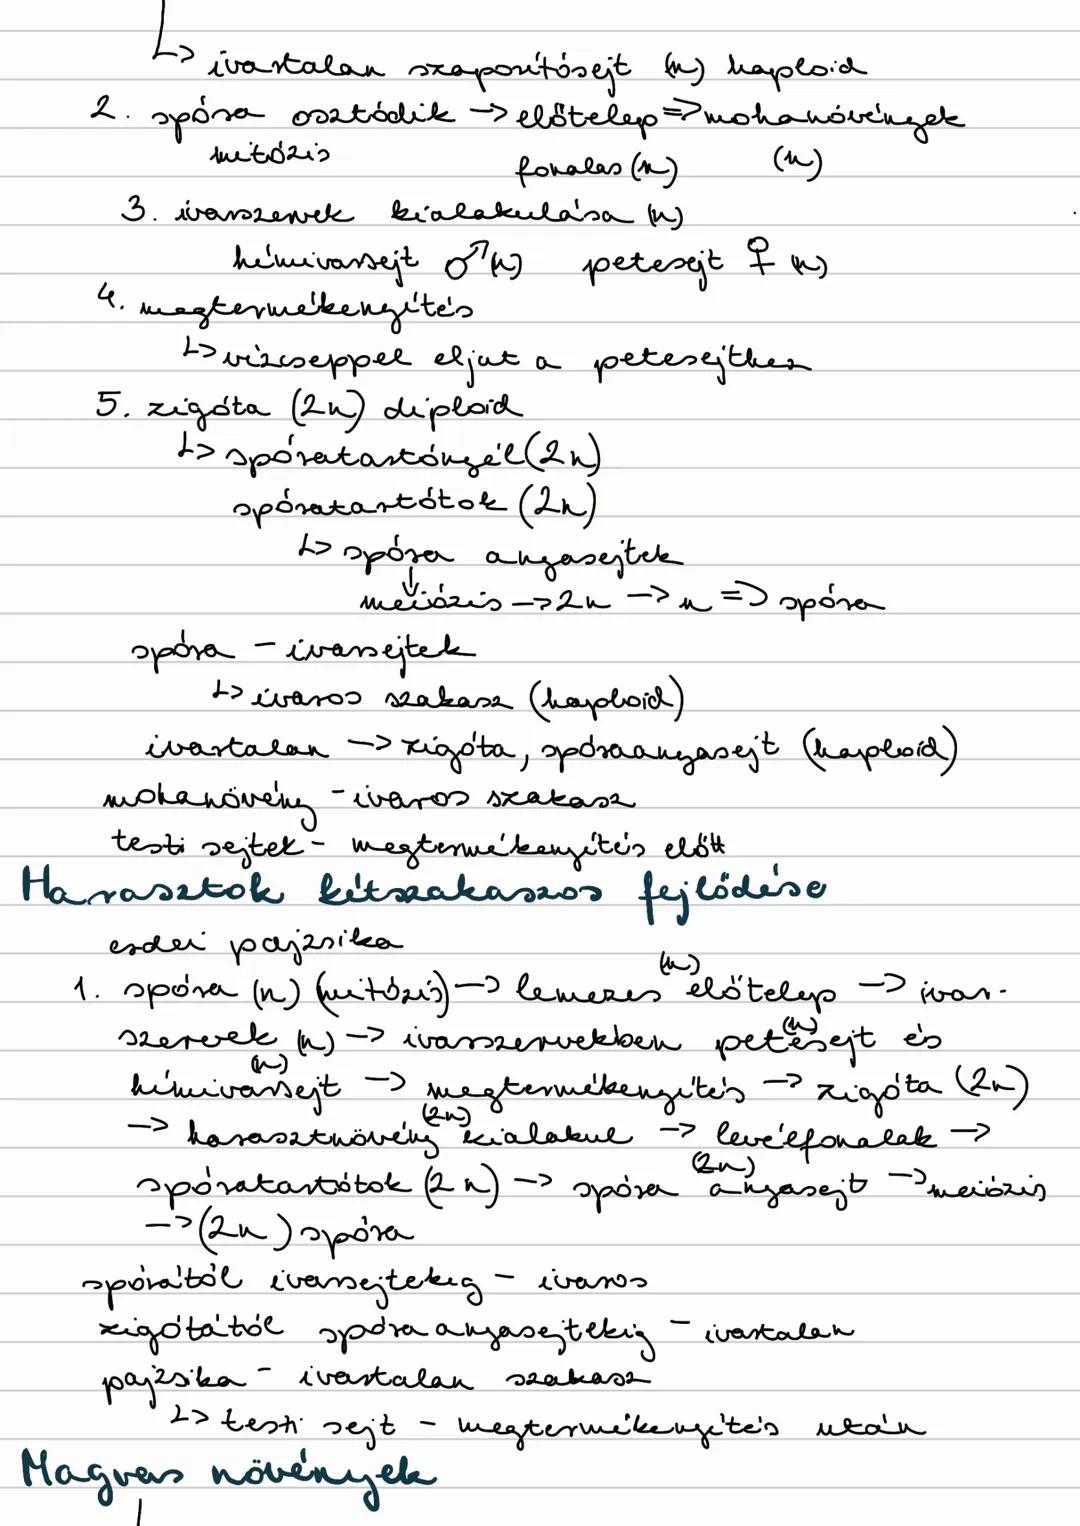 ↳ ivartalan szaporítósejt (n) haploid
2. spóra osztódik → előtelep => mohanövények
mitózis fonalas (n) (n)
3. ivarszervek kialakulása (n)
hímivarsejt ♂ (n) petesejt ♀ (n)
4. megtermékenyítés
↳ vízcseppel eljut a petesejthez
5. zigóta (2n) diploid
↳ spóratartónyél (2n)
spóratartótok (2n)
↳ spóra anyasejtek
↓
meiózis → 2n → n => spóra
spóra - ivarsejtek
↳ ivaros szakasz (haploid)
ivartalan → zigóta, spóraanyasejt (haploid)
mohanövény - ivaros szakasz
testi sejtek - megtermékenyítés előtt
Harasztok kétszakaszos fejlődése
erdei pajzsika
1. spóra (n) (mitózis) → lemezes (n) előtelep → ivar-
szervek (n) → ivarszervekben petesejt (n) és
hímivarsejt (n) → megtermékenyítés → zigóta (2n)
→ harasztnövény (2n) kialakul → levélfonalak →
spóratartótok (2n) → spóra anyasejt (2n) → meiózis
→ (2n) spóra
spórától ivarsejtekig - ivaros
zigótától spóra anyasejtekig - ivartalan
pajzsika - ivartalan szakasz
↳ testi sejt - megtermékenyítés után
Magvas növények